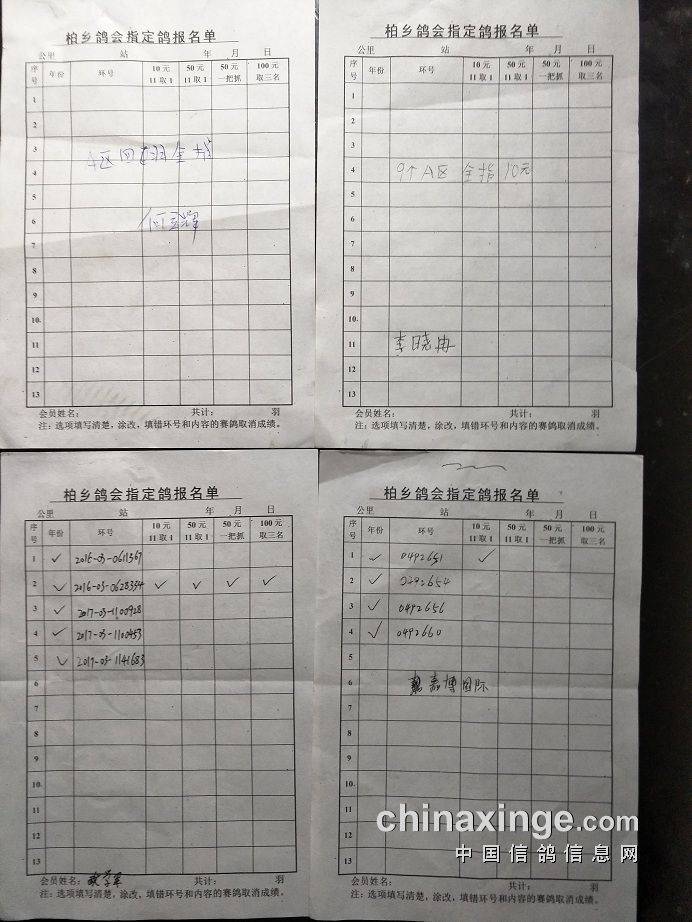 柏乡鸽会指定鸽报名单
公里 站 年 月 日
序号 年份 环号 10元 11取1 50元 11取1 50元 一把抓 100元 取三名
1
2
3
A区四 羽全指
4
5
6
何 辉
7
8
9
10.
11
12
13
会员姓名: 共计: 羽
注:选项填写清楚,涂改,填错环号和内容的赛鸽取消成绩。
柏乡鸽会指定鸽报名单
公里 站 年 月 日
序号 年份 环号 10元 11取1 50元 11取1 50元 一把抓 100元 取三名
1
2
3
4 9个A区 全指10元
5
6
7
8
9
10
11 李晓冉
12
13
会员姓名: 共计: 羽
注:选项填写清楚,涂改,填错环号和内容的赛鸽取消成绩。
柏乡鸽会指定鸽报名单
公里 站 年 月 日
序号 年份 环号 10元 11取1 50元 11取1 50元 一把抓 100元 取三名
1 ✓ 2015-03-0611367
2 ✓ 2016-03-0628334 ✓ ✓ ✓ ✓
3 ✓ 2017-03-1100928
4 ✓ 2017-03-1100453
5 ✓ 2017-03-1141683
6
7
8
9
10.
11
12
13
会员姓名: 共计: 羽
注:选项填写清楚,涂改,填错环号和内容的赛鸽取消成绩。
柏乡鸽会指定鸽报名单
公里 站 年 月 日
序号 年份 环号 10元 11取1 50元 11取1 50元 一把抓 100元 取三名
1 ✓ 0492651 ✓
2 ✓ 0492654
3 ✓ 0492656
4 ✓ 0492660
5
6 嘉博国际
7
8
9
10
11
12
13
会员姓名: 共计: 羽
注:选项填写清楚,涂改,填错环号和内容的赛鸽取消成绩。
chinaxinge.com
中国信鸽信息网